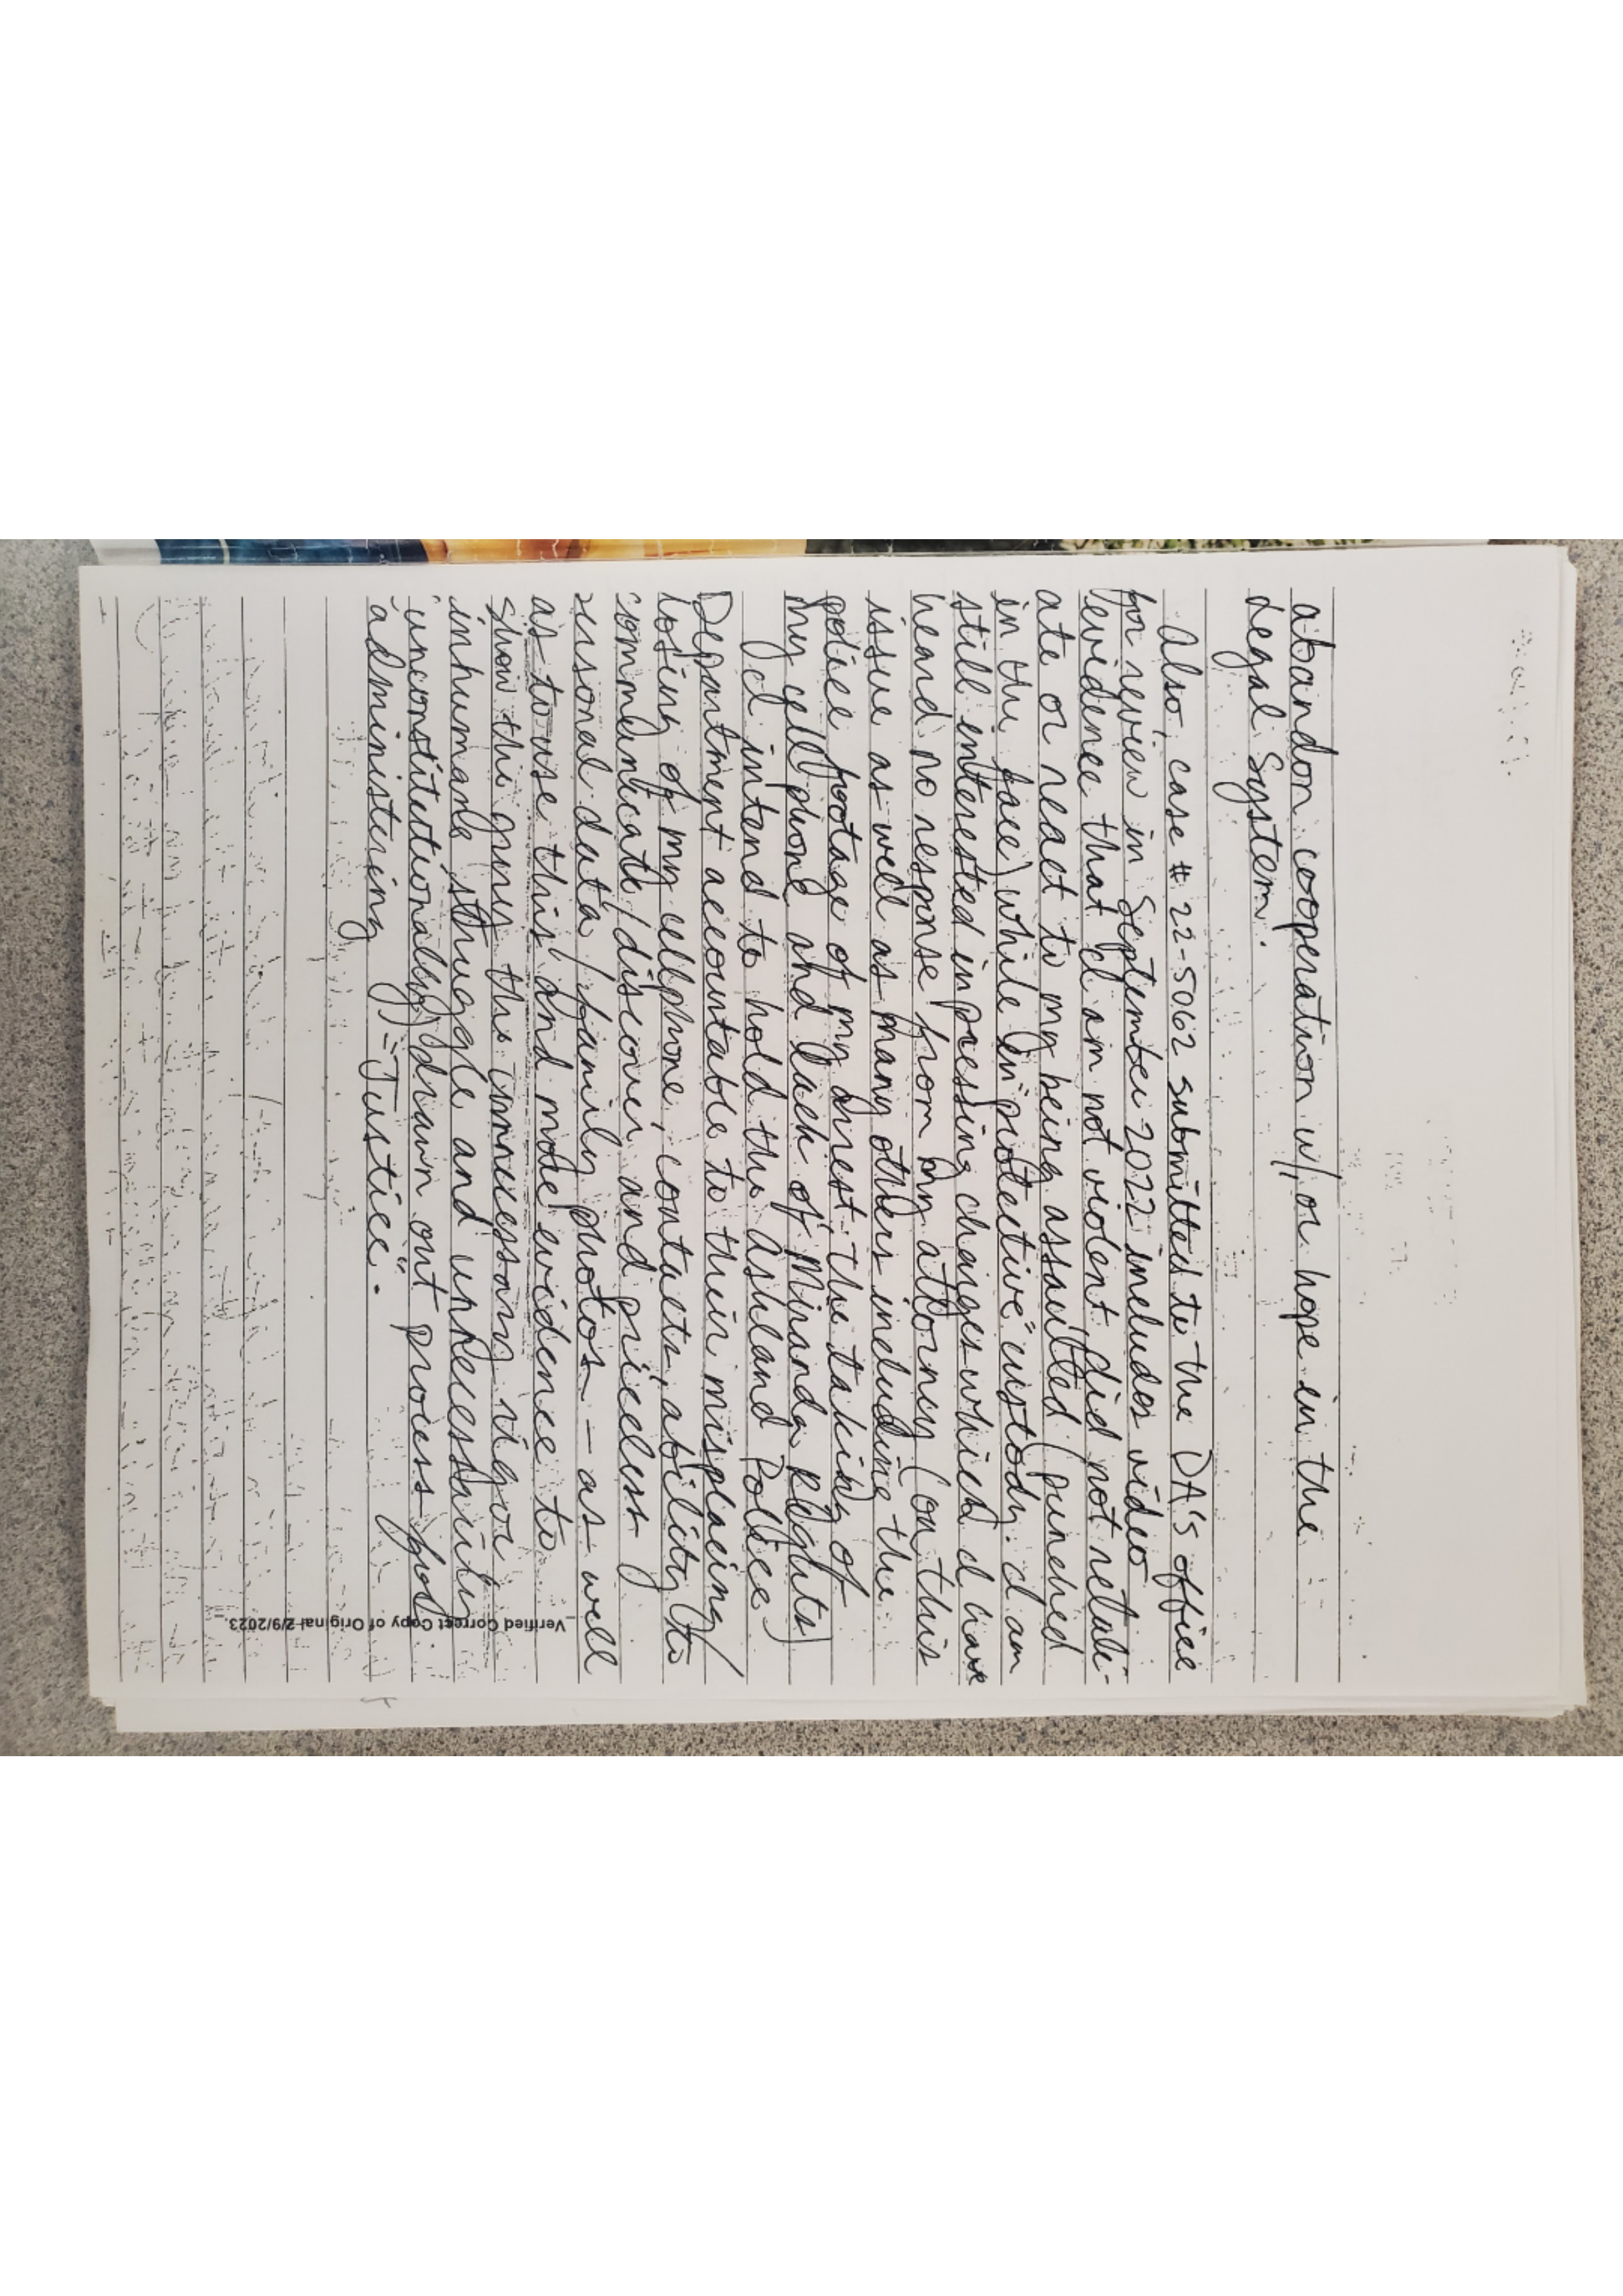 abandon cooperation w/, or hope in the
Legal System.
Also, case # 22-5062 submitted to the DA's office
for review in September 2022 includes video
evidence that I am not violent, did not retali-
ate or react to my being assaulted (punched
in the face) while in "protective" custody. I am
still interested in pressing charges which I have
heard no response from my attorney (on this
issue as well as many others including the
police footage of my arrest, the taking of
my cell phone and lack of Miranda Rights)
I intend to hold the Ashland Police
Department accountable to their misplacing/
losing of my cellphone, contacts, ability to
communicate/discover, and priceless
personal data/family photos - as well
as to use this and more evidence to
show the
inhumane struggle and unnecessarily
(unconstitutionally) drawn out process for
administering "Justice".
Verified Correct Copy of Original 2/9/2023